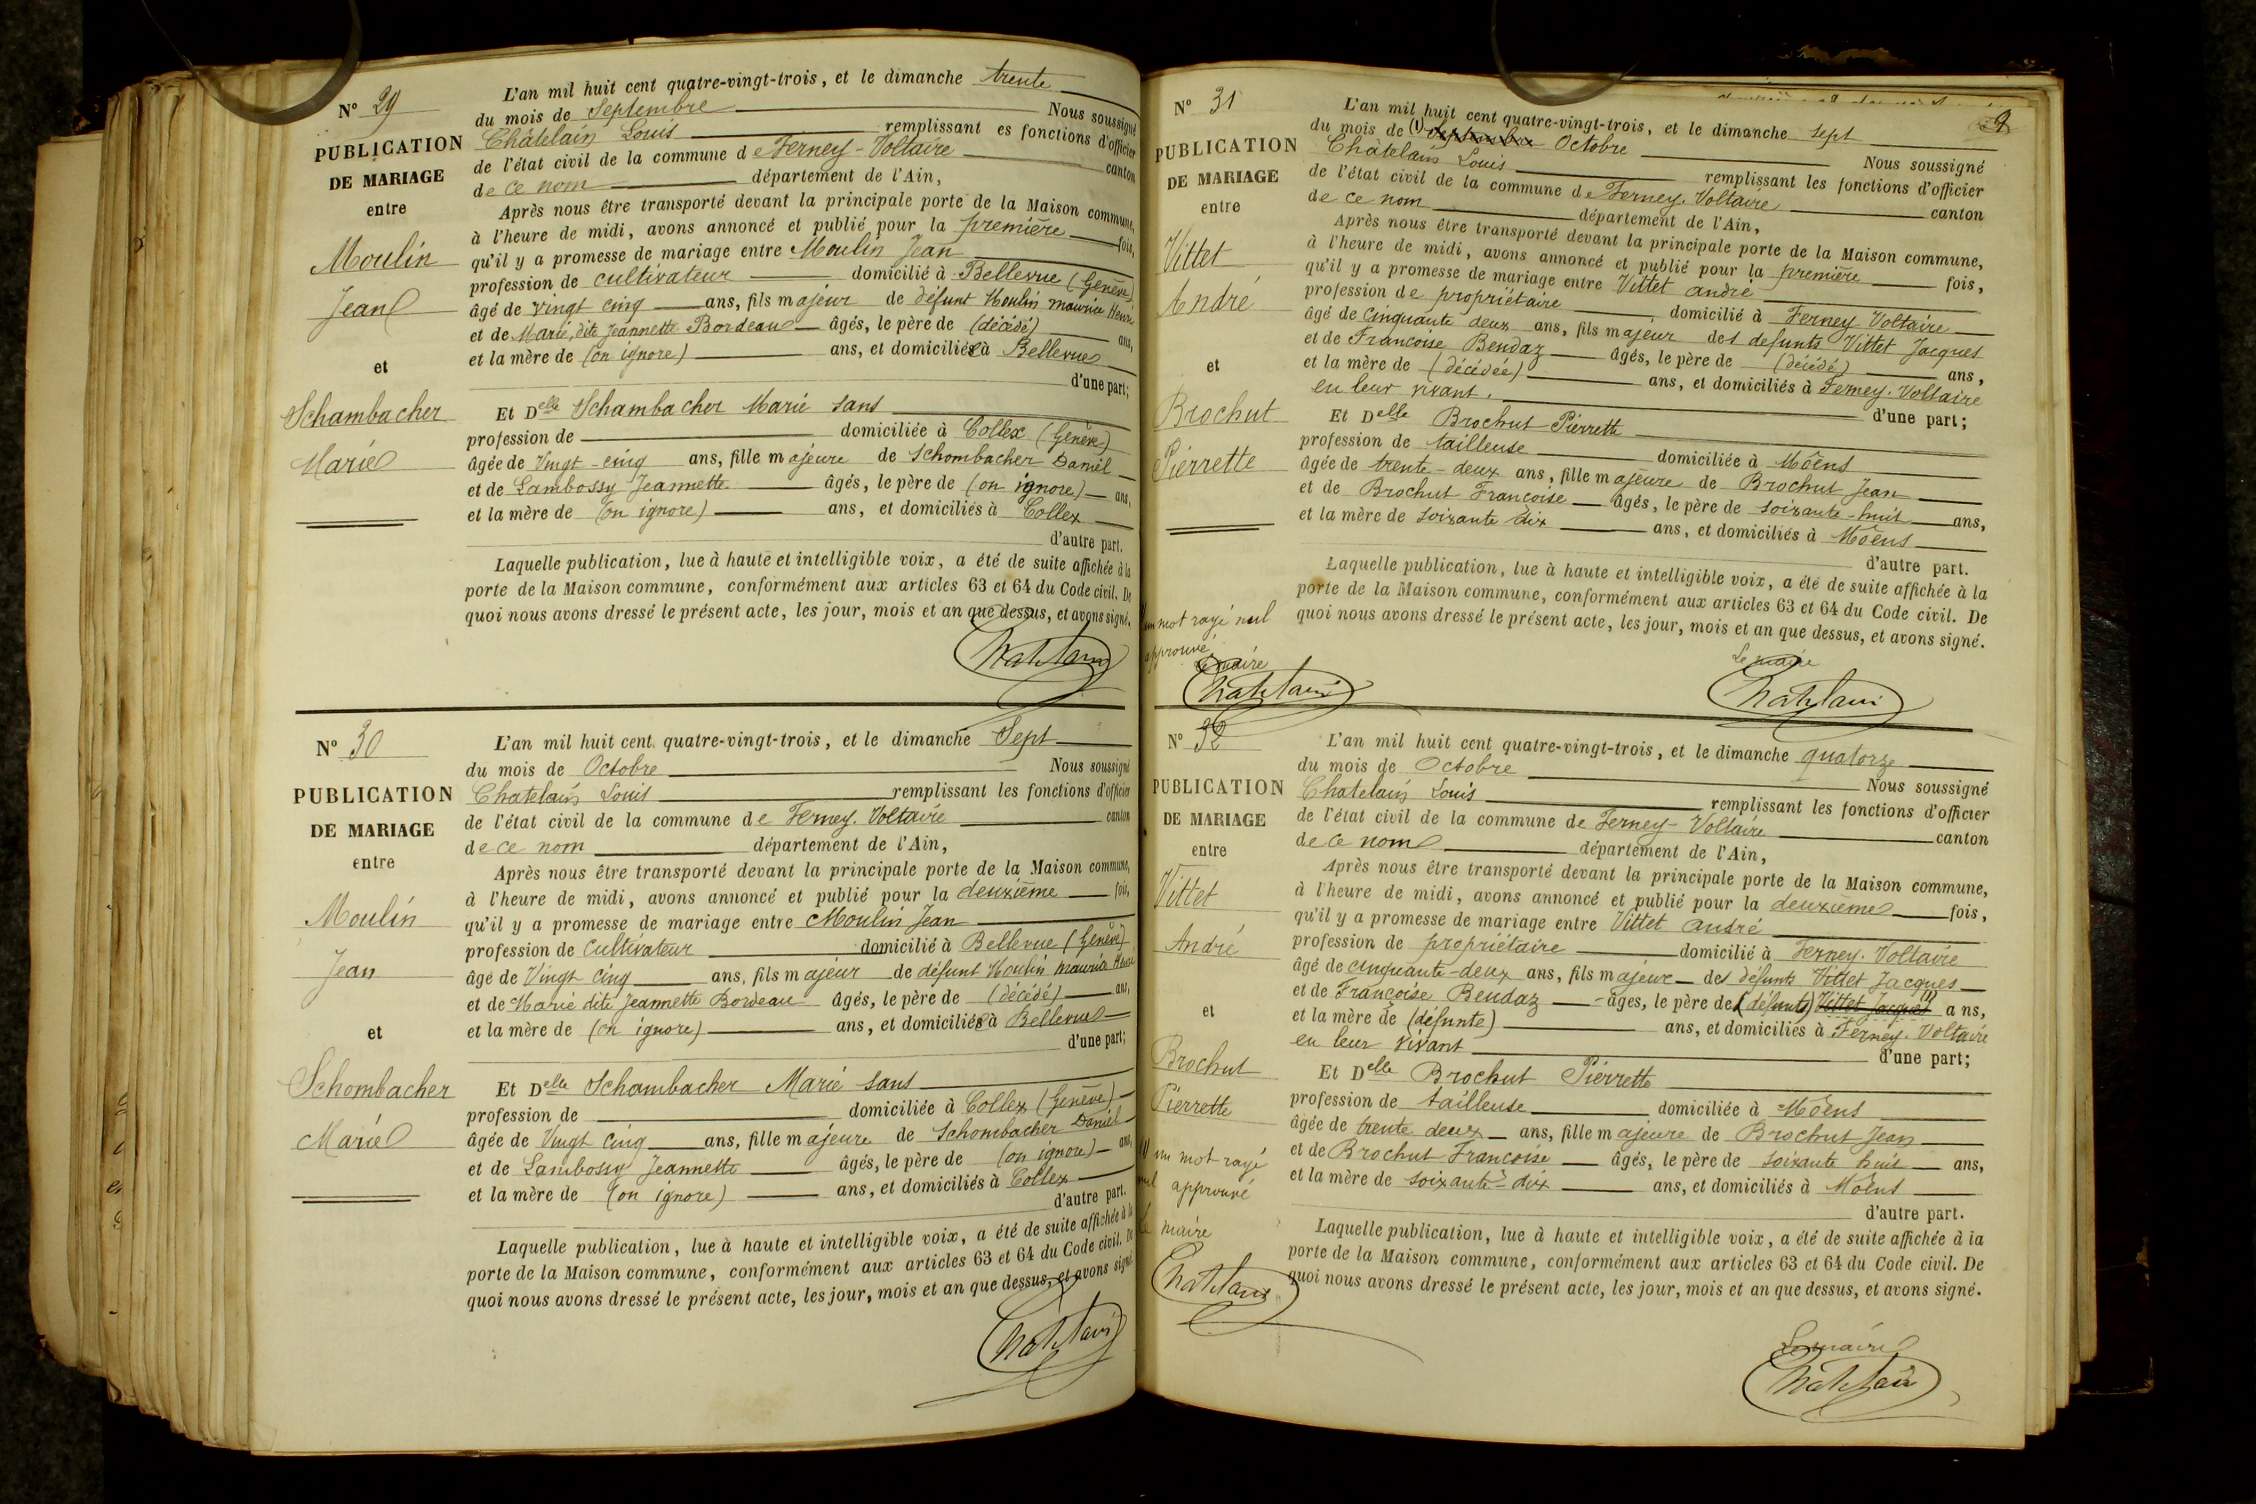 N° 29
PUBLICATION
DE MARIAGE
entre
Moulin
Jean
et
Schambacher
Marie
L'an mil huit cent quatre-vingt-trois, et le dimanche trente
du mois de Septembre Nous soussigné
Châtelain Louis remplissant es fonctions d'officier
de l'état civil de la commune de Ferney-Voltaire canton
de ce nom département de l'Ain,
Après nous être transporté devant la principale porte de la Maison commune,
à l'heure de midi, avons annoncé et publié pour la première fois,
qu'il y a promesse de mariage entre Moulin Jean
profession de cultivateur domicilié à Bellevue (Genève)
âgé de vingt cinq ans, fils majeur de défunt Moulin Maurice Henri
et de Marie, dite Jeannette Bordeau âgés, le père de (décédé) ans,
et la mère de (on ignore) ans, et domiciliée à Bellevue
d'une part;
Et Delle Schambacher Marie sans
profession de domiciliée à Collex (Genève)
âgée de Vingt-cinq ans, fille majeure de Schombacher Daniel
et de Lambossy Jeannette âgés, le père de (on ignore) ans,
et la mère de (on ignore) ans, et domiciliés à Collex
d'autre part.
Laquelle publication, lue à haute et intelligible voix, a été de suite affichée à la
porte de la Maison commune, conformément aux articles 63 et 64 du Code civil. De
quoi nous avons dressé le présent acte, les jour, mois et an que dessus, et avons signé.
Chatelain
N° 30
PUBLICATION
DE MARIAGE
entre
Moulin
Jean
et
Schombacher
Marie
L'an mil huit cent quatre-vingt-trois, et le dimanche Sept
du mois de Octobre Nous soussigné
Chatelain Louis remplissant les fonctions d'officier
de l'état civil de la commune de Ferney-Voltaire canton
de ce nom département de l'Ain,
Après nous être transporté devant la principale porte de la Maison commune,
à l'heure de midi, avons annoncé et publié pour la deuxième fois,
qu'il y a promesse de mariage entre Moulin Jean
profession de Cultivateur domicilié à Bellevue (Genève)
âgé de Vingt cinq ans, fils majeur de défunt Moulin Maurice Henri
et de Marie dite Jeannette Bordeau âgés, le père de (décédé) ans,
et la mère de (on ignore) ans, et domiciliée à Bellevue
d'une part;
Et Delle Schambacher Marie sans
profession de domiciliée à Collex (Genève)
âgée de Vingt cinq ans, fille majeure de Schombacher Daniel
et de Lambossy Jeannette âgés, le père de (on ignore) ans,
et la mère de (on ignore) ans, et domiciliés à Collex
d'autre part.
Laquelle publication, lue à haute et intelligible voix, a été de suite affichée à la
porte de la Maison commune, conformément aux articles 63 et 64 du Code civil. De
quoi nous avons dressé le présent acte, les jour, mois et an que dessus, et avons signé.
Chatelain
N° 31
PUBLICATION
DE MARIAGE
entre
Vittet
André
et
Brochut
Pierrette
un mot rayé nul
approuvé
Le maire
Chatelain
L'an mil huit cent quatre-vingt-trois, et le dimanche sept
du mois de (1) Septembre Octobre Nous soussigné
Châtelain Louis remplissant les fonctions d'officier
de l'état civil de la commune de Ferney-Voltaire canton
de ce nom département de l'Ain,
Après nous être transporté devant la principale porte de la Maison commune,
à l'heure de midi, avons annoncé et publié pour la première fois,
qu'il y a promesse de mariage entre Vittet André
profession de propriétaire domicilié à Ferney Voltaire
âgé de Cinquante deux ans, fils majeur des defunts Vittet Jacques
et de Françoise Bendaz âgés, le père de (décédé) ans,
et la mère de (décédée) ans, et domiciliés à Ferney-Voltaire
en leur vivant. d'une part;
Et Delle Brochut Pierrette
profession de tailleuse domiciliée à Moëns
âgée de trente-deux ans, fille majeure de Brochut Jean
et de Brochut Françoise âgés, le père de soixante-huit ans,
et la mère de soixante dix ans, et domiciliés à Moëns
d'autre part.
Laquelle publication, lue à haute et intelligible voix, a été de suite affichée à la
porte de la Maison commune, conformément aux articles 63 et 64 du Code civil. De
quoi nous avons dressé le présent acte, les jour, mois et an que dessus, et avons signé.
Le maire
Chatelain
N° 32
PUBLICATION
DE MARIAGE
entre
Vittet
André
et
Brochut
Pierrette
(1) un mot rayé
nul approuvé
Le maire
Chatelain
L'an mil huit cent quatre-vingt-trois, et le dimanche quatorze
du mois de Octobre Nous soussigné
Chatelain Louis remplissant les fonctions d'officier
de l'état civil de la commune de Ferney-Voltaire canton
de ce nom département de l'Ain,
Après nous être transporté devant la principale porte de la Maison commune,
à l'heure de midi, avons annoncé et publié pour la deuxieme fois,
qu'il y a promesse de mariage entre Vittet André
profession de propriétaire domicilié à Ferney-Voltaire
âgé de cinquante-deux ans, fils majeur des défunts Vittet Jacques
et de Françoise Bendaz âgés, le père de (défunt) Vittet Jacques (1) ans,
et la mère de (défunte) ans, et domiciliés à Ferney-Voltaire
en leur vivant d'une part;
Et Delle Brochut Pierrette
profession de tailleuse domiciliée à Moëns
âgée de trente deux ans, fille majeure de Brochut Jean
et de Brochut Françoise âgés, le père de soixante huit ans,
et la mère de soixante-dix ans, et domiciliés à Moëns
d'autre part.
Laquelle publication, lue à haute et intelligible voix, a été de suite affichée à la
porte de la Maison commune, conformément aux articles 63 et 64 du Code civil. De
quoi nous avons dressé le présent acte, les jour, mois et an que dessus, et avons signé.
Le maire
Chatelain